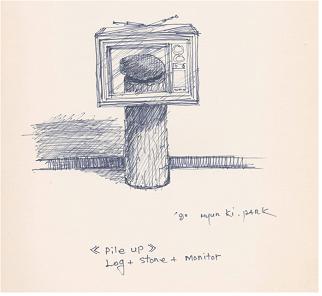 '80 Hyun Ki. PARK
≪ Pile up ≫
Log + stone + monitor